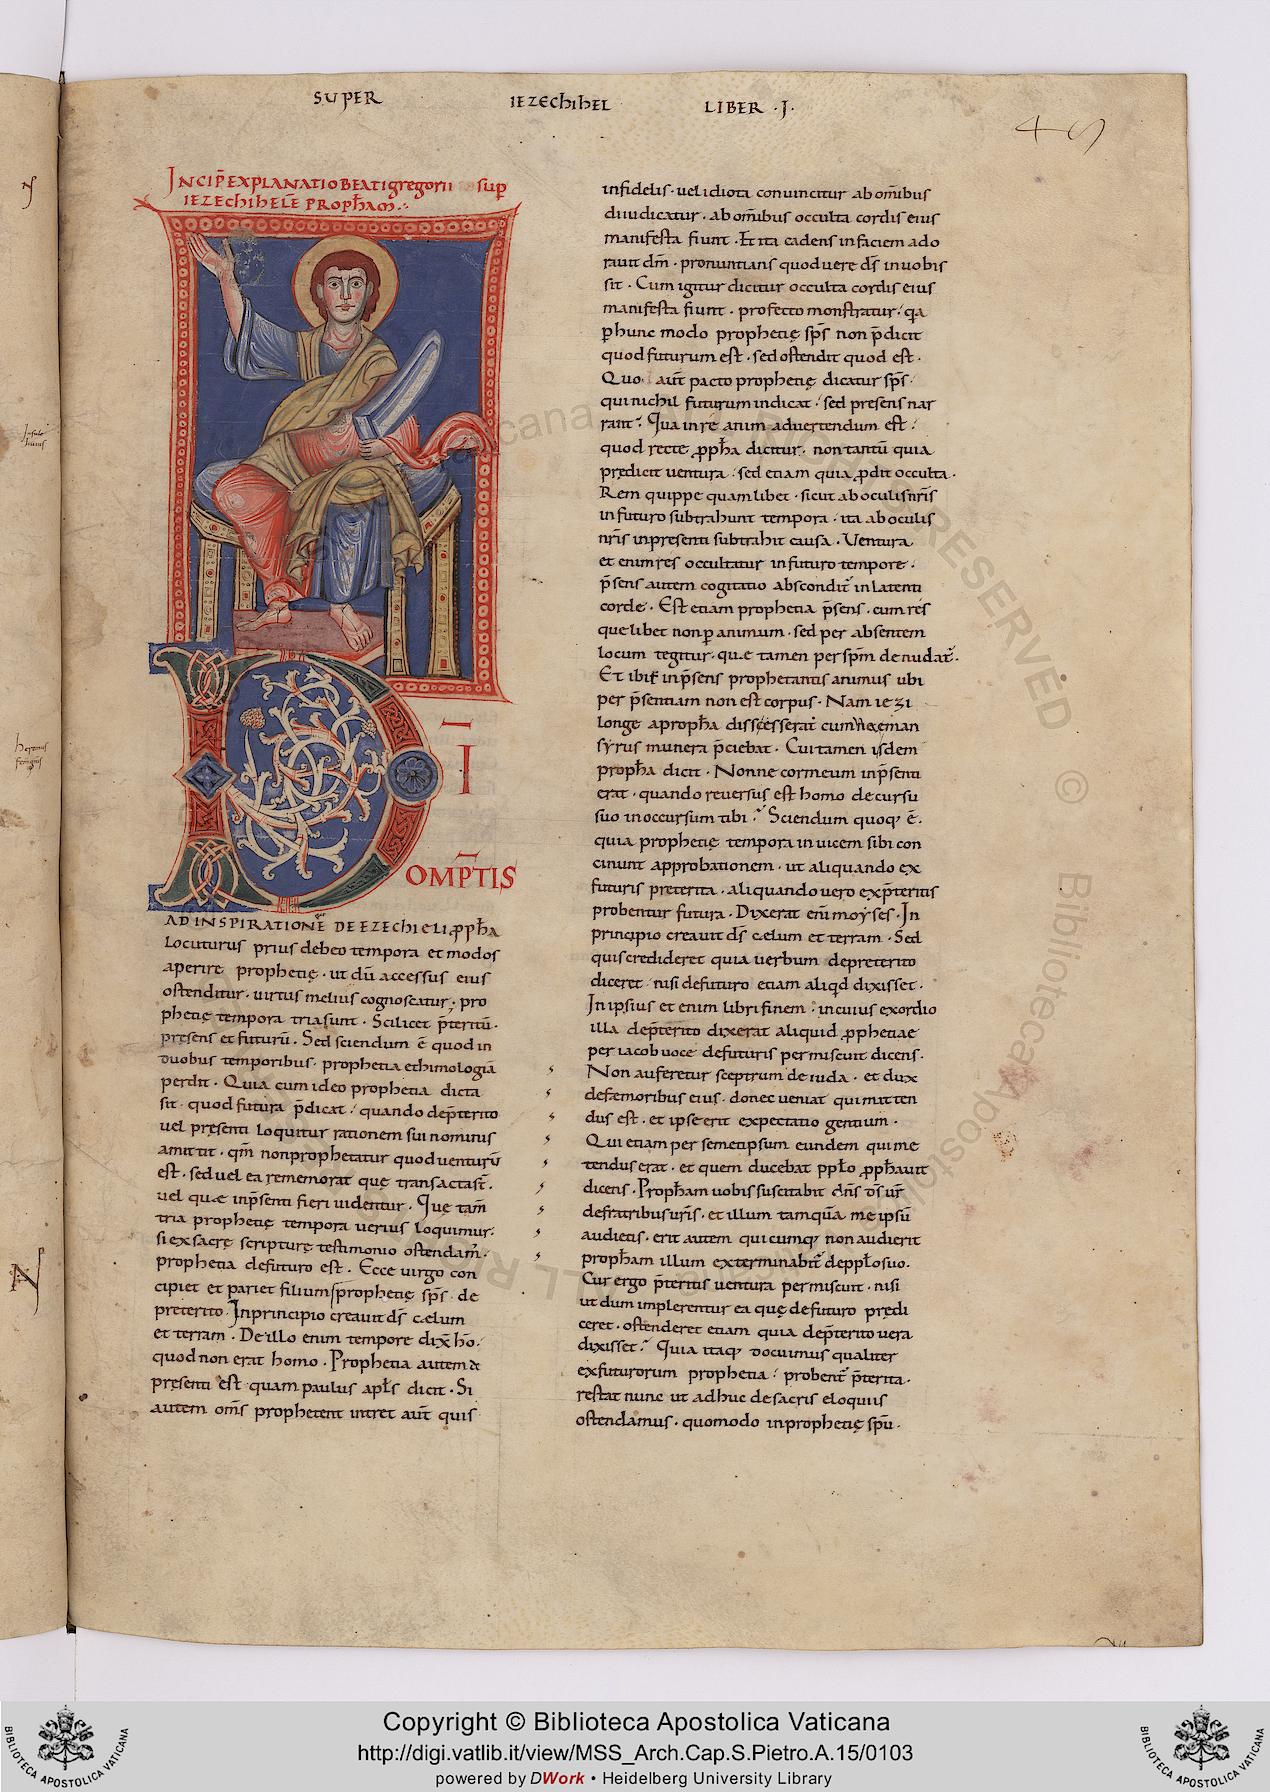 SUPER IEZEChIhEL LIBER .I.
INCIP̄ EXPLANATIO BEATI gregorii sup̄
IEZEChIhELĒ PROPħAM
D̄I
OMP̄TIS
AD INSPIRATIONĒ DE EZEChIELI ꝓpħa
Locuturus prius debeo tempora et modos
aperire prophetię . ut dū accessus eius
ostenditur . uirtus melius cognoscatur . pro
phetię tempora tria sunt . Scilicet p̄teritū .
presens et futurū . Sed sciendum ē quod in
duobus temporibus . prophetia ethimologiā
perdit . Quia cum ideo prophetia dicta
sit . quod futura p̄dicat . quando dep̄terito
uel pręsenti loquitur rationem sui nominis
amittit . qm̄ non prophetatur quod uenturū
est . sed uel ea rememorat quę transacta st̄ .
uel quæ inp̄senti fieri uidentur . Que tam̄
tria prophetię tempora uerius loquimur .
si ex sacrę scripturę testimonio ostendam̄ .
prophetia de futuro est . Ecce uirgo con
cipiet et pariet filium prophetię sp̄s . de
preterito . In principio creauit ds̄ cælum
et terram . De illo enim tempore dix̄ hō .
quod non erat homo . Prophetia autem de
presenti est quam paulus apl̄s dicit . Si
autem om̄s prophetent intret aut̄ quis
infidelis . uel idiota conuincitur ab om̄ibus
diiudicatur . ab om̄ibus occulta cordis eius
manifesta fiunt . Et ita cadens in faciem ado
rauit dm̄ . pronuntians quod uere ds̄ in uobis
sit . Cum igitur dicitur occulta cordis eius
manifesta fiunt . profecto monstratur . qa
ꝑ hunc modo prophetię sp̄s non p̄dicit
quod futurum est . sed ostendit quod est .
Quo aut̄ pacto prophetię dicatur sp̄s .
qui nichil futurum indicat . sed presens nar
rant . Qua in re anim aduertendum est .
quod recte ꝓpħa dicitur . non tantū quia
prędicit uentura . sed etiam quia ꝓdit occulta .
Rem quippe quam libet . sicut ab oculis nr̄is
in futuro subtrahunt tempora . ita ab oculis
nr̄is inpresenti subtrahit causa . Uentura
et enim res occultatur in futuro tempore .
p̄sens autem cogitatio abscondit̄ in latenti
corde . Est etiam prophetia p̄sens . cum res
que libet non ꝑ animum . sed per absentem
locum tegitur . quæ tamen per sp̄m denudat̄ .
Et ibi fit inp̄sens prophetantis animus ubi
per p̄sentiam non est corpus . Nam iezi
longe a propħa discesserat cum neeman
syrus munera p̄ciebat . Cui tamen isdem
propħa dicit . Nonne cor meum inp̄senti
erat . quando reuersus est homo de cursu
suo in occursum tibi . Sciendum quoq; ē .
quia prophetię tempora in uicem sibi con
cinunt approbationem . ut aliquando ex
futuris preterita . aliquando uero ex p̄teritis
probentur futura . Dixerat eni̅ moyses . In
principio creauit ds̄ cælum et terram . Sed
quis credideret quia uerbum depreterito
diceret nisi defuturo etiam aliqd dixisset .
In ipsius et enim libri finem . in cuius exordio
illa dep̄terito dixerat aliquid ꝓphetiae
per iacob uoce defuturis permiscuit dicens .
Non auferetur sceptrum de iuda . et dux
de femoribus eius . donec ueniat qui mitten
dus est . et ipse erit expectatio gentium .
Qui etiam per semetipsum eundem qui me
tendus erat . et quem ducebat ppło ꝓpħauit
dicens . Propħam uobis suscitabit dn̄s ds̄ ur̄
defratribus ur̄is . et illum tamquā me ipsū
audietis . erit autem quicumq; non audierit
propħam illum exterminabit̄ de ppło suo .
Cur ergo p̄teritis uentura permiscuit . nisi
ut dum implerentur ea quę de futuro prędi
ceret . ostenderet etiam quia dep̄terito uera
dixisset . Quia itaq; docuimus qualiter
ex futurorum prophetia . probent̄ p̄terita .
restat nunc ut adhuc de sacris eloquiis
ostendamus . quomodo in prophetię spū .
Copyright © Biblioteca Apostolica Vaticana
http://digi.vatlib.it/view/MSS_Arch.Cap.S.Pietro.A.15/0103
powered by DWork • Heidelberg University Library
BIBLIOTECA APOSTOLICA VATICANA
BIBLIOTECA APOSTOLICA VATICANA